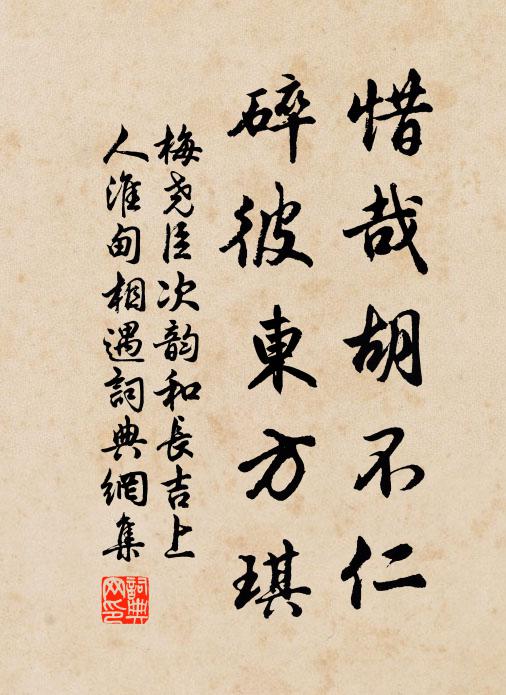 惜哉胡不仁
碎彼東方琪
梅堯臣次韵和長吉上
人淮甸相遇詞典網集
詞典
网印